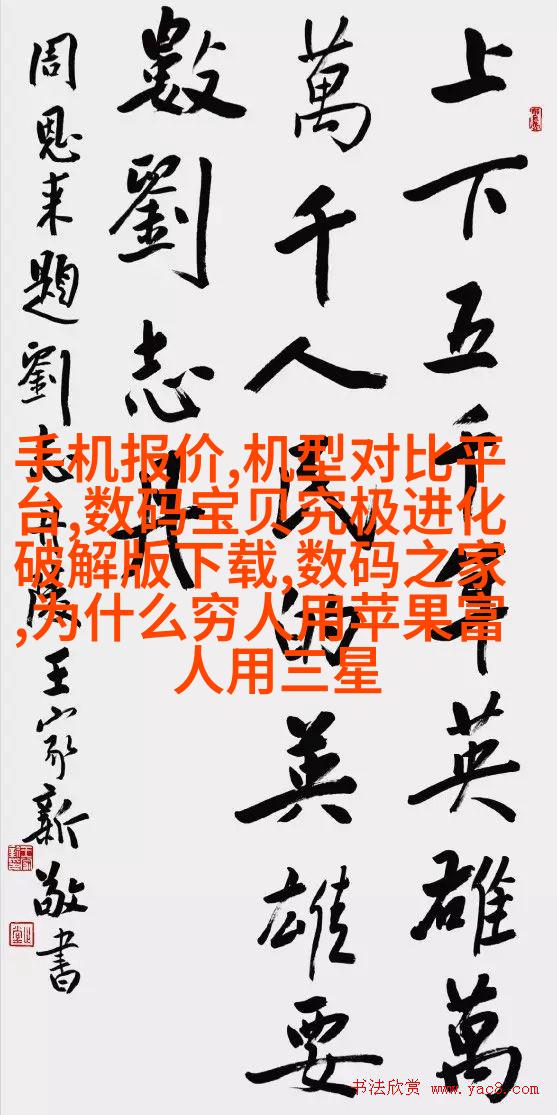 上下五千年英雄萬
萬千人民的英雄要
數劉志丹
周恩来題劉志丹陵王家新敬書
手机报价,机型对比平
台,数码宝贝究极进化
破解版下载,数码之家
,为什么穷人用苹果富
人用三星
书法欣赏 www.yac8.com